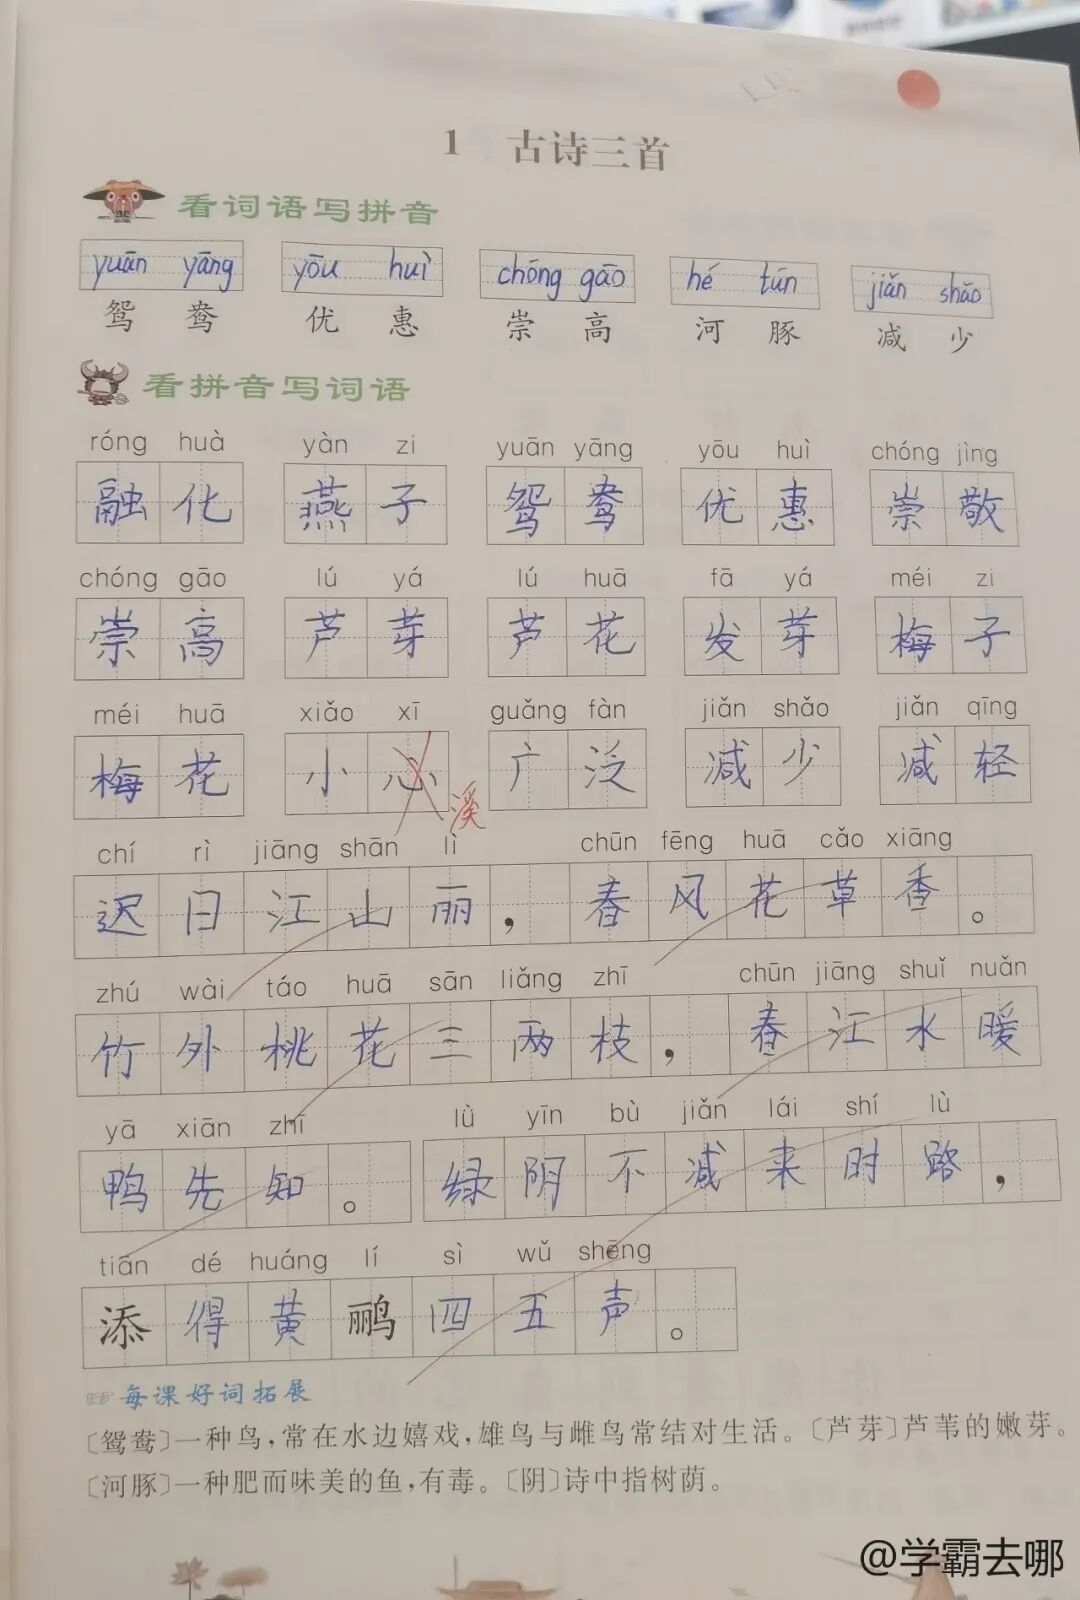 1 古诗三首
看词语写拼音
yuān yāng yōu huì chóng gāo hé tún jiǎn shǎo
鸳 鸯 优 惠 崇 高 河 豚 减 少
看拼音写词语
róng huà yàn zi yuān yāng yōu huì chóng jìng
融 化 燕 子 鸳 鸯 优 惠 崇 敬
chóng gāo lú yá lú huā fā yá méi zi
崇 高 芦 芽 芦 花 发 芽 梅 子
méi huā xiǎo xī guǎng fàn jiǎn shǎo jiǎn qīng
梅 花 小 心 溪 广 泛 减 少 减 轻
chí rì jiāng shān lì chūn fēng huā cǎo xiāng
迟 日 江 山 丽 , 春 风 花 草 香 。
zhú wài táo huā sān liǎng zhī chūn jiāng shuǐ nuǎn
竹 外 桃 花 三 两 枝 , 春 江 水 暖
yā xiān zhī lǜ yīn bù jiǎn lái shí lù
鸭 先 知 。 绿 阴 不 减 来 时 路 ,
tiān dé huáng lí sì wǔ shēng
添 得 黄 鹂 四 五 声 。
每课好词拓展
〔鸳鸯〕一种鸟,常在水边嬉戏,雄鸟与雌鸟常结对生活。〔芦芽〕芦苇的嫩芽。
〔河豚〕一种肥而味美的鱼,有毒。〔阴〕诗中指树荫。
@学霸去哪